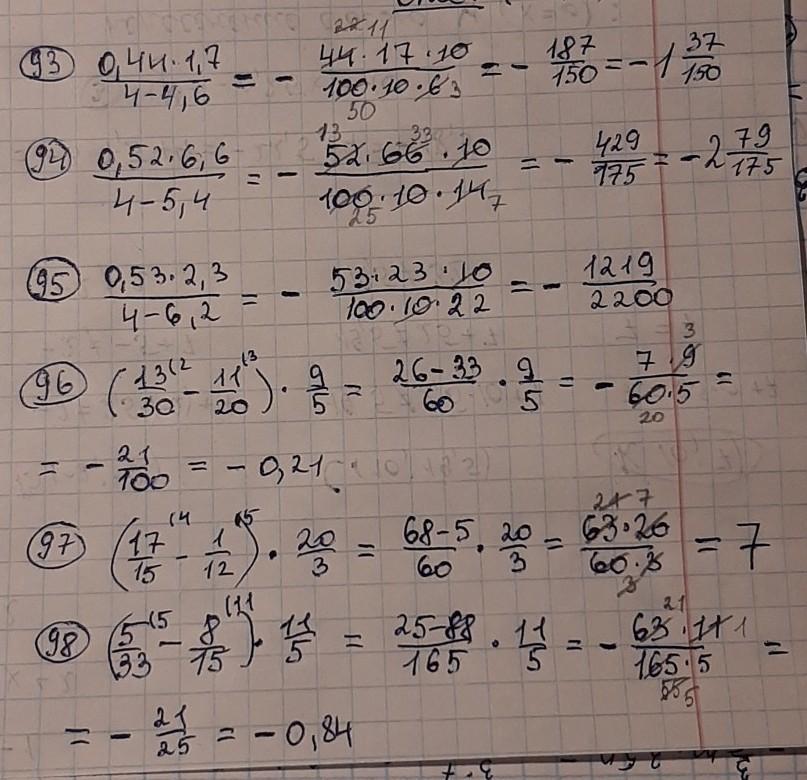 93) (0,44·1,7)/(4-4,6) = - (44·17·10)/(100·10·6) = - 187/150 = -1 37/150
94) (0,52·6,6)/(4-5,4) = - (52·66·10)/(100·10·14) = - 429/175 = -2 79/175
95) (0,53·2,3)/(4-6,2) = - (53·23·10)/(100·10·22) = - 1219/2200
96) (13/30 - 11/20) · 9/5 = (26-33)/60 · 9/5 = - (7·9)/(60·5) =
= - 21/100 = - 0,21.
97) (17/15 - 1/12) · 20/3 = (68-5)/60 · 20/3 = (63·20)/(60·3) = 7
98) (5/33 - 8/15) · 11/5 = (25-88)/165 · 11/5 = - (63·11)/(165·5) =
= - 21/25 = - 0,84